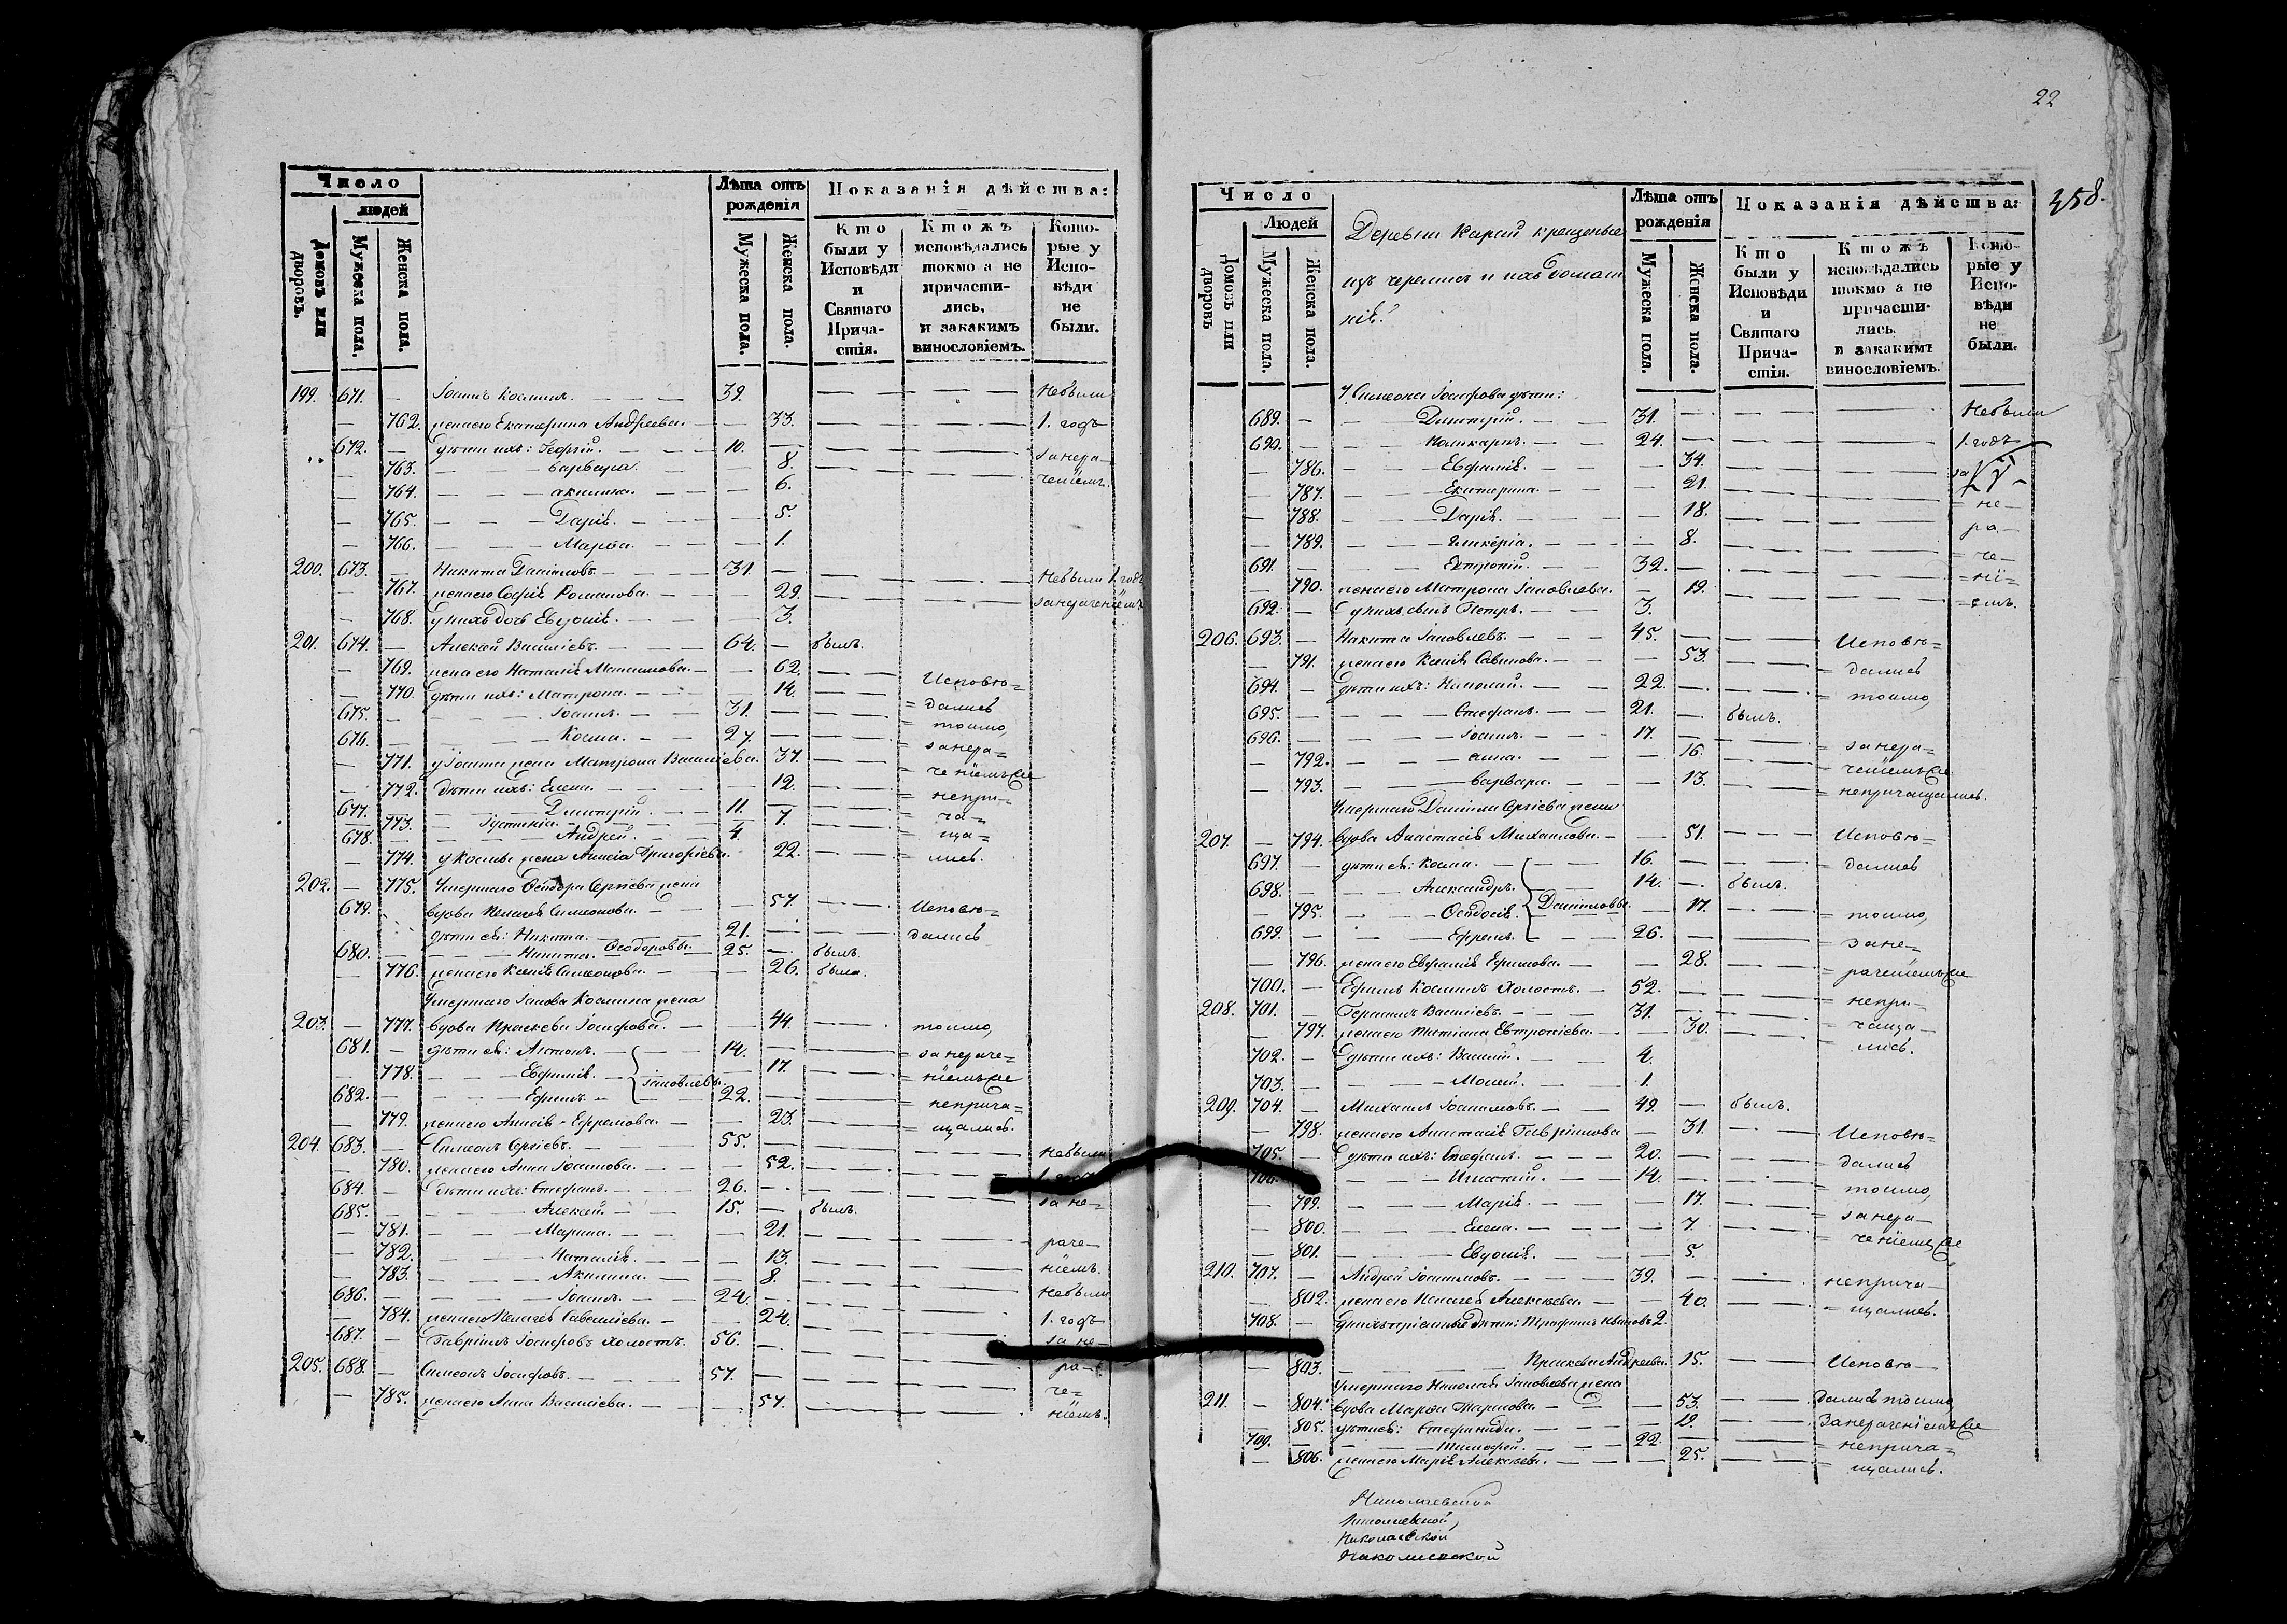 Число
людей
Домовъ или дворовъ.
Мужеска пола.
Женска пола.
Лѣта отъ рожденія
Мужеска пола.
Женска пола.
Показанія дѣйства:
Кто были у Исповѣди и Святаго Причастія.
Ктожъ исповѣдались токмо а не причастились, и закакимъ винословіемъ.
Которые у Исповѣди не были.
199. 671. — Іоаннъ Косминъ. 39. Небыли
762. жена его Екатерина Андреева. 33. 1. годъ
672. дѣти ихъ: Георгій. 10. занера-
763. Варвара. 8. ченіемъ.
764. Акилина. 6.
765. Дарія. 5.
766. Марѳа. 1.
200. 673. Никита Даніиловъ. 31. Небыли 1. годъ
767. жена его Софія Романова. 29. занераченіемъ
768. у нихъ дочь Евдокія. 3.
201. 674. Алексѣй Василіевъ. 64. былъ.
769. жена его Наталія Максимова. 62. Исповѣ=
770. дѣти ихъ: Матрона. 14. =дались
675. Іоаннъ. 31. =токмо,
676. Косма. 27. =занера=
771. у Іоанна жена Матрона Василіева. 37. =ченіемъ же
772. дѣти ихъ: Елена. 12. =непри=
677. Димитрій. 11. =ча=
773. Іустинія. 7. =ща=
678. Андрей. 4. =лись.
774. у Космы жена Анисія Григоріева. 22.
202. — 775. Умершаго Ѳеодора Сергіева жена
679. вдова Пелагія Симеонова. 57. Исповѣ=
дѣти ея: Никита. 21. дались
680. Никита. Ѳеодоровы. 25. былъ.
776. жена его Ксенія Симеонова. 26. была.
Умершаго Іакова Космина жена
203. — 777. вдова Праскева Іосифова. 44. токмо,
681. дѣти ея: Антонъ. 14. =занераче=
778. Евфимія. Іаковлевы. 17. =ніемъ же
682. Ефимъ. 22. =неприча=
779. жена его Анисія Ефремова. 23. =щались.
204. 683. Симеонъ Сергіевъ. 55. небыли
780. жена его Анна Іоаннова. 52.
684. дѣти ихъ: Стефанъ. 26. за не=
685. Алексѣй. 15. былъ.
781. Марина. 21. раче-
782. Наталія. 13. ніемъ.
783. Акилина. 8. небыли
686. Іоаннъ. 24.
784. жена его Пелагія Савеліева. 24. 1. годъ
687. Гавріилъ Іосифовъ холостъ. 56. за не-
205. 688. Симеонъ Іосифовъ. 57. ра-
785. жена его Анна Василіева. 57. че= ніемъ.
22
358.
Число
Людей
Домовъ или дворовъ
Мужеска пола.
Женска пола.
Деревни Карай крещеные
изъ черемисъ и ихъ домаш
нія.
Лѣта отъ рожденія
Мужеска пола.
Женска пола.
Показанія дѣйства:
Кто были у Исповѣди и Святаго Причастія.
Ктожъ исповѣдались токмо а не причастились. и закакимъ винословіемъ.
Которые у Исповѣди не были.
У Симеона Іосифова дѣти:
689. Димитрій. 31. Небыли
690. Поликарпъ. 24. 1. годъ
786. Евфимія. 34. за
787. Екатерина. 21.
788. Дарія. 18. =не-
789. Гликерія. 8. ра-
691. Евтропій. 32. =че-
790. жена его Матрона Іаковлева. 19. =ні=
692. у нихъ сынъ Петръ. 3. =емъ.
206. 693. Никита Іаковлевъ. 45. Исповѣ=
791. жена его Ксенія Савинова. 53. =дались
694. дѣти ихъ: Николай. 22. =токмо,
695. Стефанъ. 21. былъ.
696. Іоаннъ. 17. =занера=
792. Анна. 16. =ченіемъ же
793. Варвара. 13. =непричащались.
Умершаго Даніила Сергіева жена
207. — 794. вдова Анастасія Михаилова. 51. Исповѣ=
697. дѣти ея: Косма. 16. =дались
698. Александръ. 14. былъ.
795. Ѳеодосія. Даніиловы. 17. =токмо,
699. Ефремъ. 26. =зане=
796. жена его Евфимія Ефимова. 28. =раченіемъ же
700. Ефимъ Косминъ холостъ. 52. =непри-
208. 701. Герасимъ Василіевъ. 31. =чаща-
797. жена его Татіана Евтропіева. 30. =лись.
702. дѣти ихъ: Василій. 4.
703. Моисей. 1.
209. 704. Михаилъ Іоакимовъ. 49. былъ.
798. жена его Анастасія Гавріилова 31. Исповѣ=
705. дѣти ихъ: Стефанъ. 20. =дались
706. Игнатій. 14. =токмо,
799. Марія. 17. =занера-
800. Елена. 7. =ченіемъ же
801. Евдокія. 5.
210. 707. Андрей Іоакимовъ. 39. неприча-
802. жена его Пелагія Алексѣева. 40. =щались.
708. у нихъ пріемные дѣти: Трофимъ Ивановъ 2.
803. Праскева Андреева. 15. Исповѣ-
Умершаго Николая Іаковлева жена
211. — 804. вдова Марѳа Тарасова. 53. дались токмо
805. дѣти ея: Стефанида. 19. Занераченіемъ же
709. Тимофей. 22. =неприча=
806. жена его Марія Алексѣева. 25. =щались.
Николаевской
Николаевской,
Николаевской
Николаевской